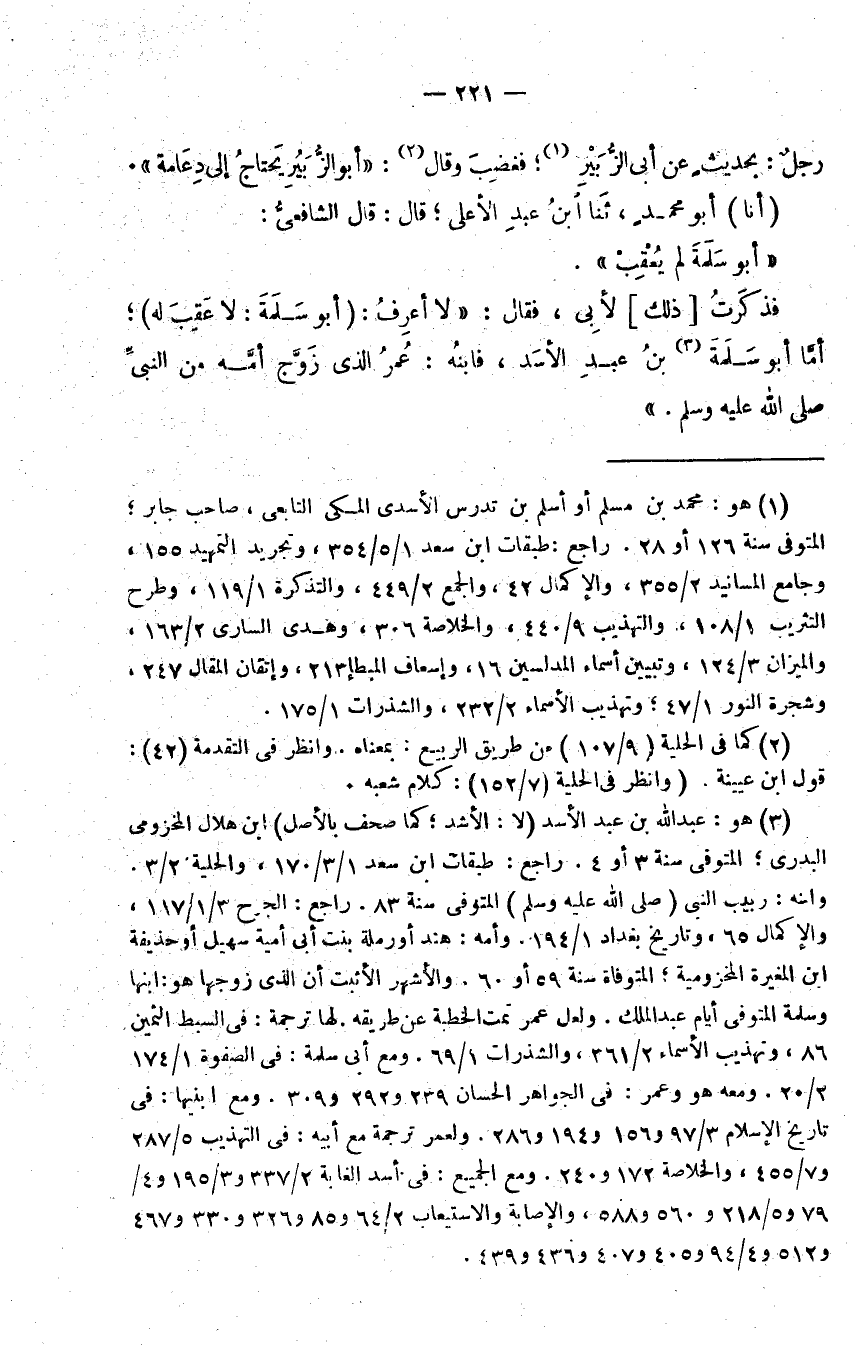 — ٢٢١ —
رجلٌ : بحديثٍ عن أبى الزُّبَيْرِ (١) ؛ فغضِبَ وقال (٢) : «أبو الزُّبَيْرِ يَحتاجُ إلى دِعَامة» .
(أنا) أبو محمـدٍ ، ثَنا ابنُ عبدِ الأعلى ؛ قال : قال الشافعىُّ :
« أبو سَلَمَةَ لم يُعْقِبْ » .
فذكَرتُ [ ذلك ] لأَبِى ، فقال : « لا أعرِفُ : (أبو سَـلَمَةَ : لا عَقِبَ له) ؛
أمَّا أبو سَـلَمَةَ (٣) بنُ عبـدِ الأسَد ، فابنُه : عُمرُ الذى زَوَّج أمَّـه من النبىِّ
صلى الله عليه وسلم . »
(١) هو : محمد بن مسلم أو أسلم بن تدرس الأسدى المـكى التابعى ، صاحب جابر ؛
المتوفى سنة ١٢٦ أو ٢٨ . راجع : طبقات ابن سعد ٣٥٤/٥/١ ، وتجريد التمهيد ١٥٥ ،
وجامع المسانيد ٣٥٥/٢ ، والإكمال ٤٢ ، والجمع ٤٤٩/٢ ، والتذكرة ١١٩/١ ، وطرح
التثريب ١٠٨/١ ، والتهذيب ٤٤٠/٩ ، والخلاصة ٣٠٦ ، وهـدى السارى ١٦٣/٢ ،
والميزان ١٢٤/٣ ، وتبيين أسماء المدلسين ١٦ ، وإسعاف المبطإ ٢١٣ ، وإتقان المقال ٢٤٧ ،
وشجرة النور ٤٧/١ ؛ وتهذيب الأسماء ٢٣٢/٢ ، والشذرات ١٧٥/١ .
(٢) كما فى الحلية ( ١٠٧/٩ ) من طريق الربيع : بمعناه . وانظر فى التقدمة (٤٢) :
قول ابن عيينة . ( وانظر فى الحلية (١٥٢/٧) : كلام شعبه .
(٣) هو : عبدالله بن عبد الأسد (لا : الأشد ؛ كما صحف بالأصل) ابن هلال المخزومى
البدرى ؛ المتوفى سنة ٣ أو ٤ . راجع : طبقات ابن سعد ١٧٠/٣/١ ، والحلية ٣/٢ .
وابنه : ربيب النبى ( صلى الله عليه وسلم ) المتوفى سنة ٨٣ . راجع : الجرح ١١٧/١/٣ ،
والإكمال ٦٥ ، وتاريخ بغداد ١٩٤/١ . وأمه : هند أو رملة بنت أبى أمية سهيل أو حذيفة
ابن المغيرة المخزومية ؛ المتوفاة سنة ٥٩ أو ٦٠ . والأشهر الأثبت أن الذى زوجها هو : ابنها
وسلمة المتوفى أيام عبدالملك . ولعل عمر تمت الخطبة عن طريقه . لها ترجمة : فى السبط الثمين
٨٦ ، وتهذيب الأسماء ٣٦١/٢ ، والشذرات ٦٩/١ . ومع أبى سلمة : فى الصفوة ١٧٤/١
٢٠/٢ . ومعه هو وعمر : فى الجواهر الحسان ٢٣٩ و٢٩٢ و٣٠٩ . ومع ابنيها : فى
تاريخ الإسلام ٩٧/٣ و١٥٦ و١٩٤ و٢٨٦ . ولعمر ترجمة مع أبيه : فى التهذيب ٢٨٧/٥
و٤٥٥/٧ ، والخلاصة ١٧٢ و٢٤٠ . ومع الجميع : فى أسد الغابة ٣٣٧/٢ و١٩٥/٣ و٤/
٧٩ و٢١٨/٥ و ٥٦٠ و٥٨٨ ، والإصابة والاستيعاب ٦٤/٢ و٨٥ و٣٢٦ و٣٣٠ و٤٦٧
و٥١٢ و٩٤/٤ و٤٠٥ و٤٠٧ و٤٣٦ و٤٣٩ .